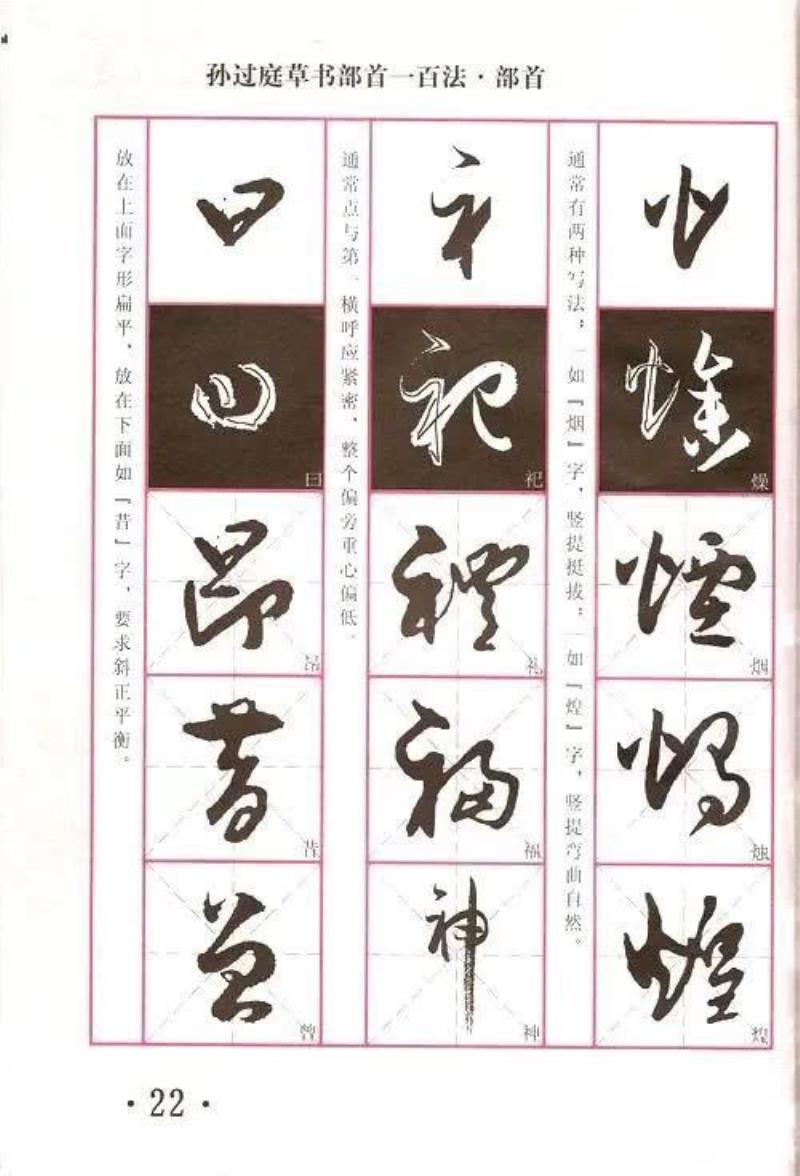 孙过庭草书部首一百法·部首
通常有两种写法：一如『烟』字，竖提挺拔；一如『煌』字，竖提弯曲自然。
燥
烟
烛
煌
通常点与第一横呼应紧密，整个偏旁重心偏低。
祀
礼
福
神
放在上面字形扁平，放在下面如『昔』字，要求斜正平衡。
曰
昂
昔
曾
·22·